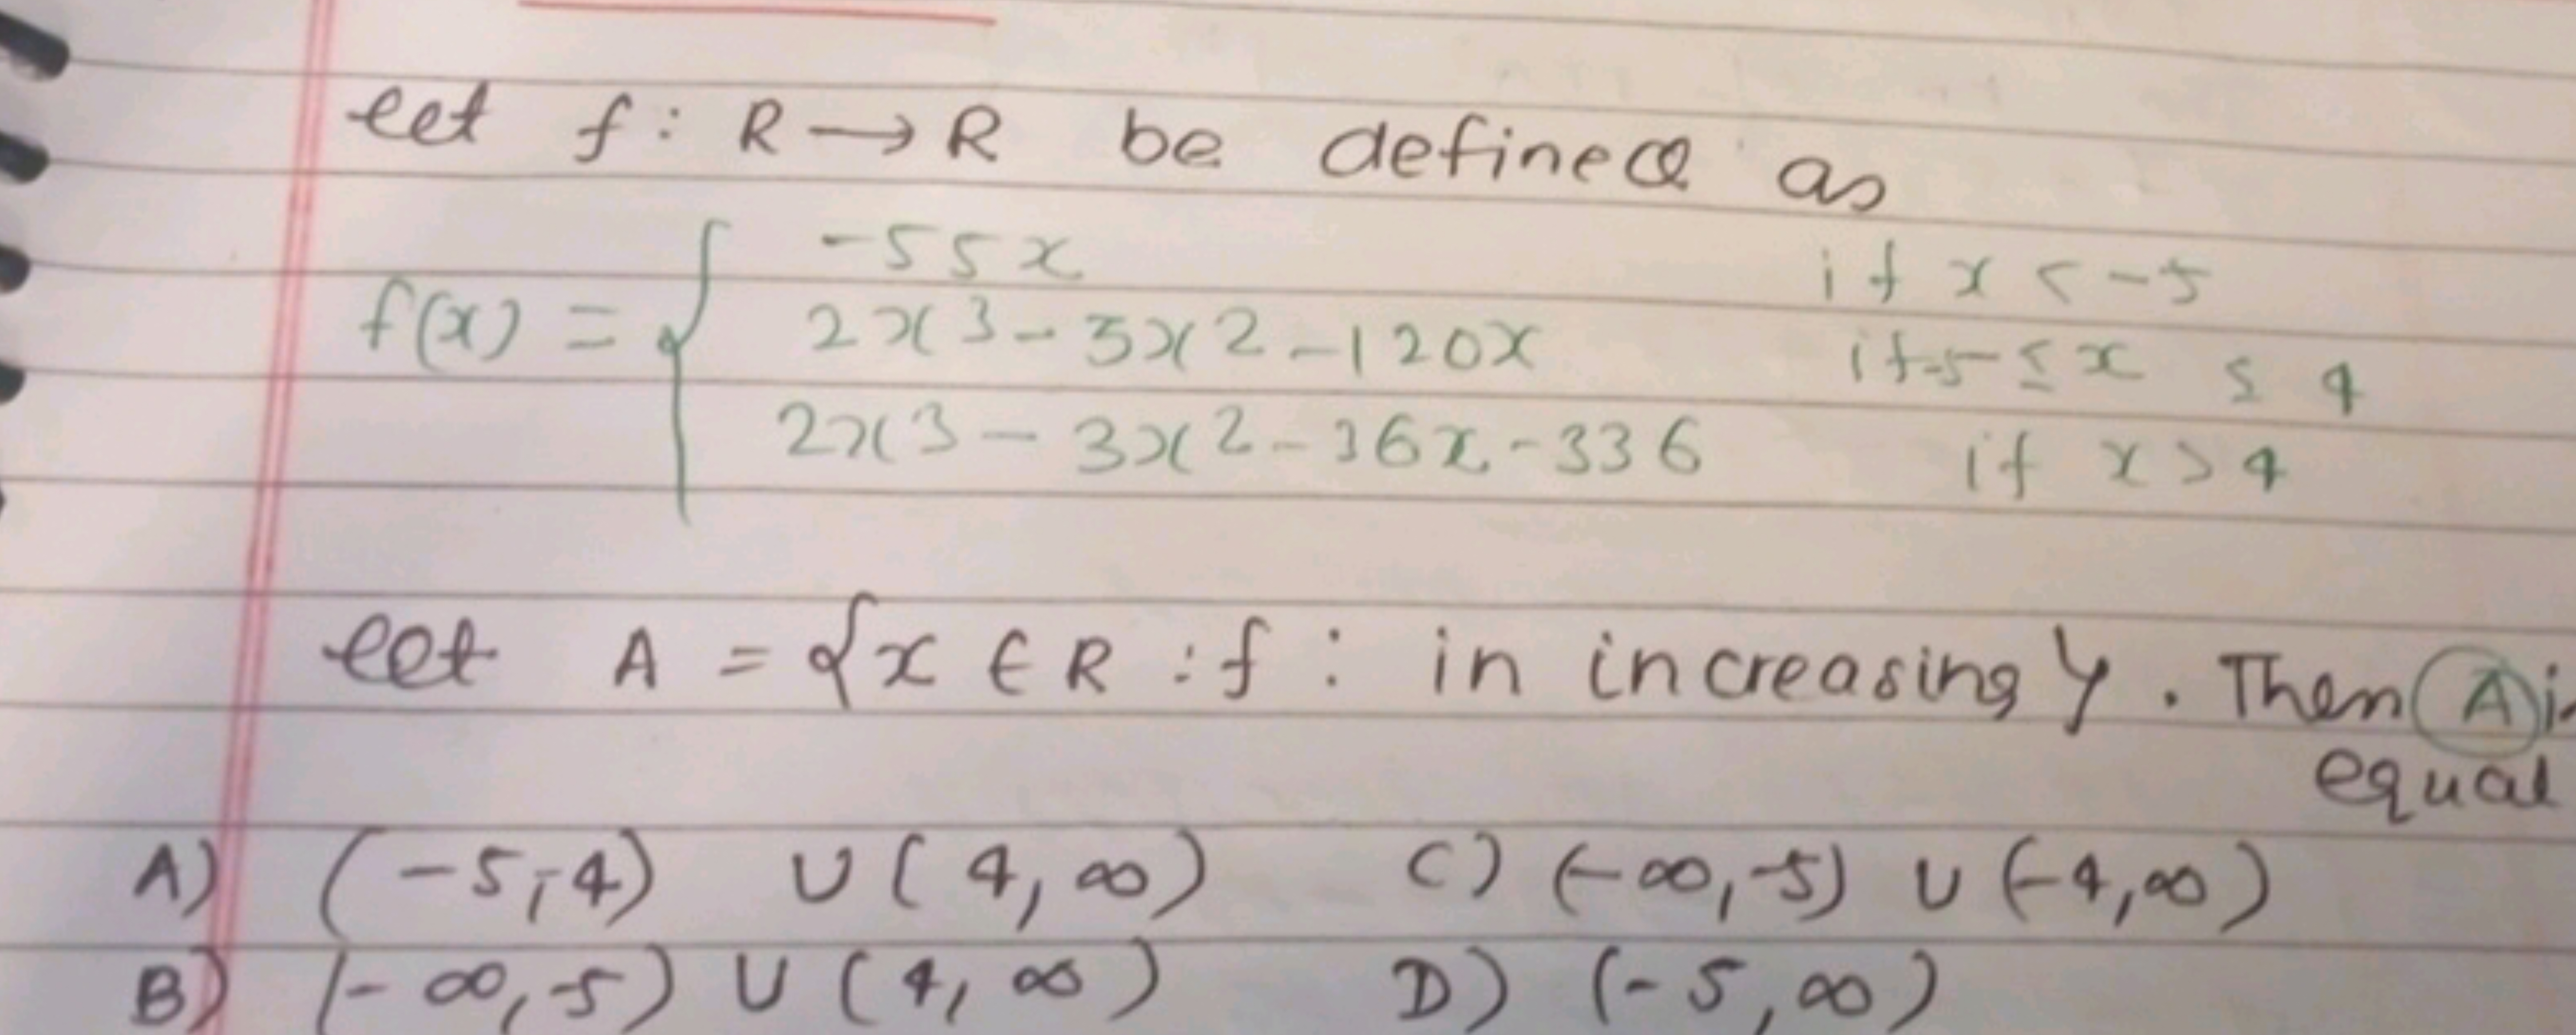 let f : R → R be defined as
f(x) = { -55x if x < -5
2x3 - 3x2 - 120x if -5 ≤ x ≤ 4
2x3 - 3x2 - 36x - 336 if x > 4
let A = {x ∈ R : f : in increasing}. Then A is
equal
A) (-5,-4) ∪ (4, ∞) C) (-∞,-5) ∪ (-4,∞)
B) (-∞,-5) ∪ (4, ∞) D) (-5,∞)